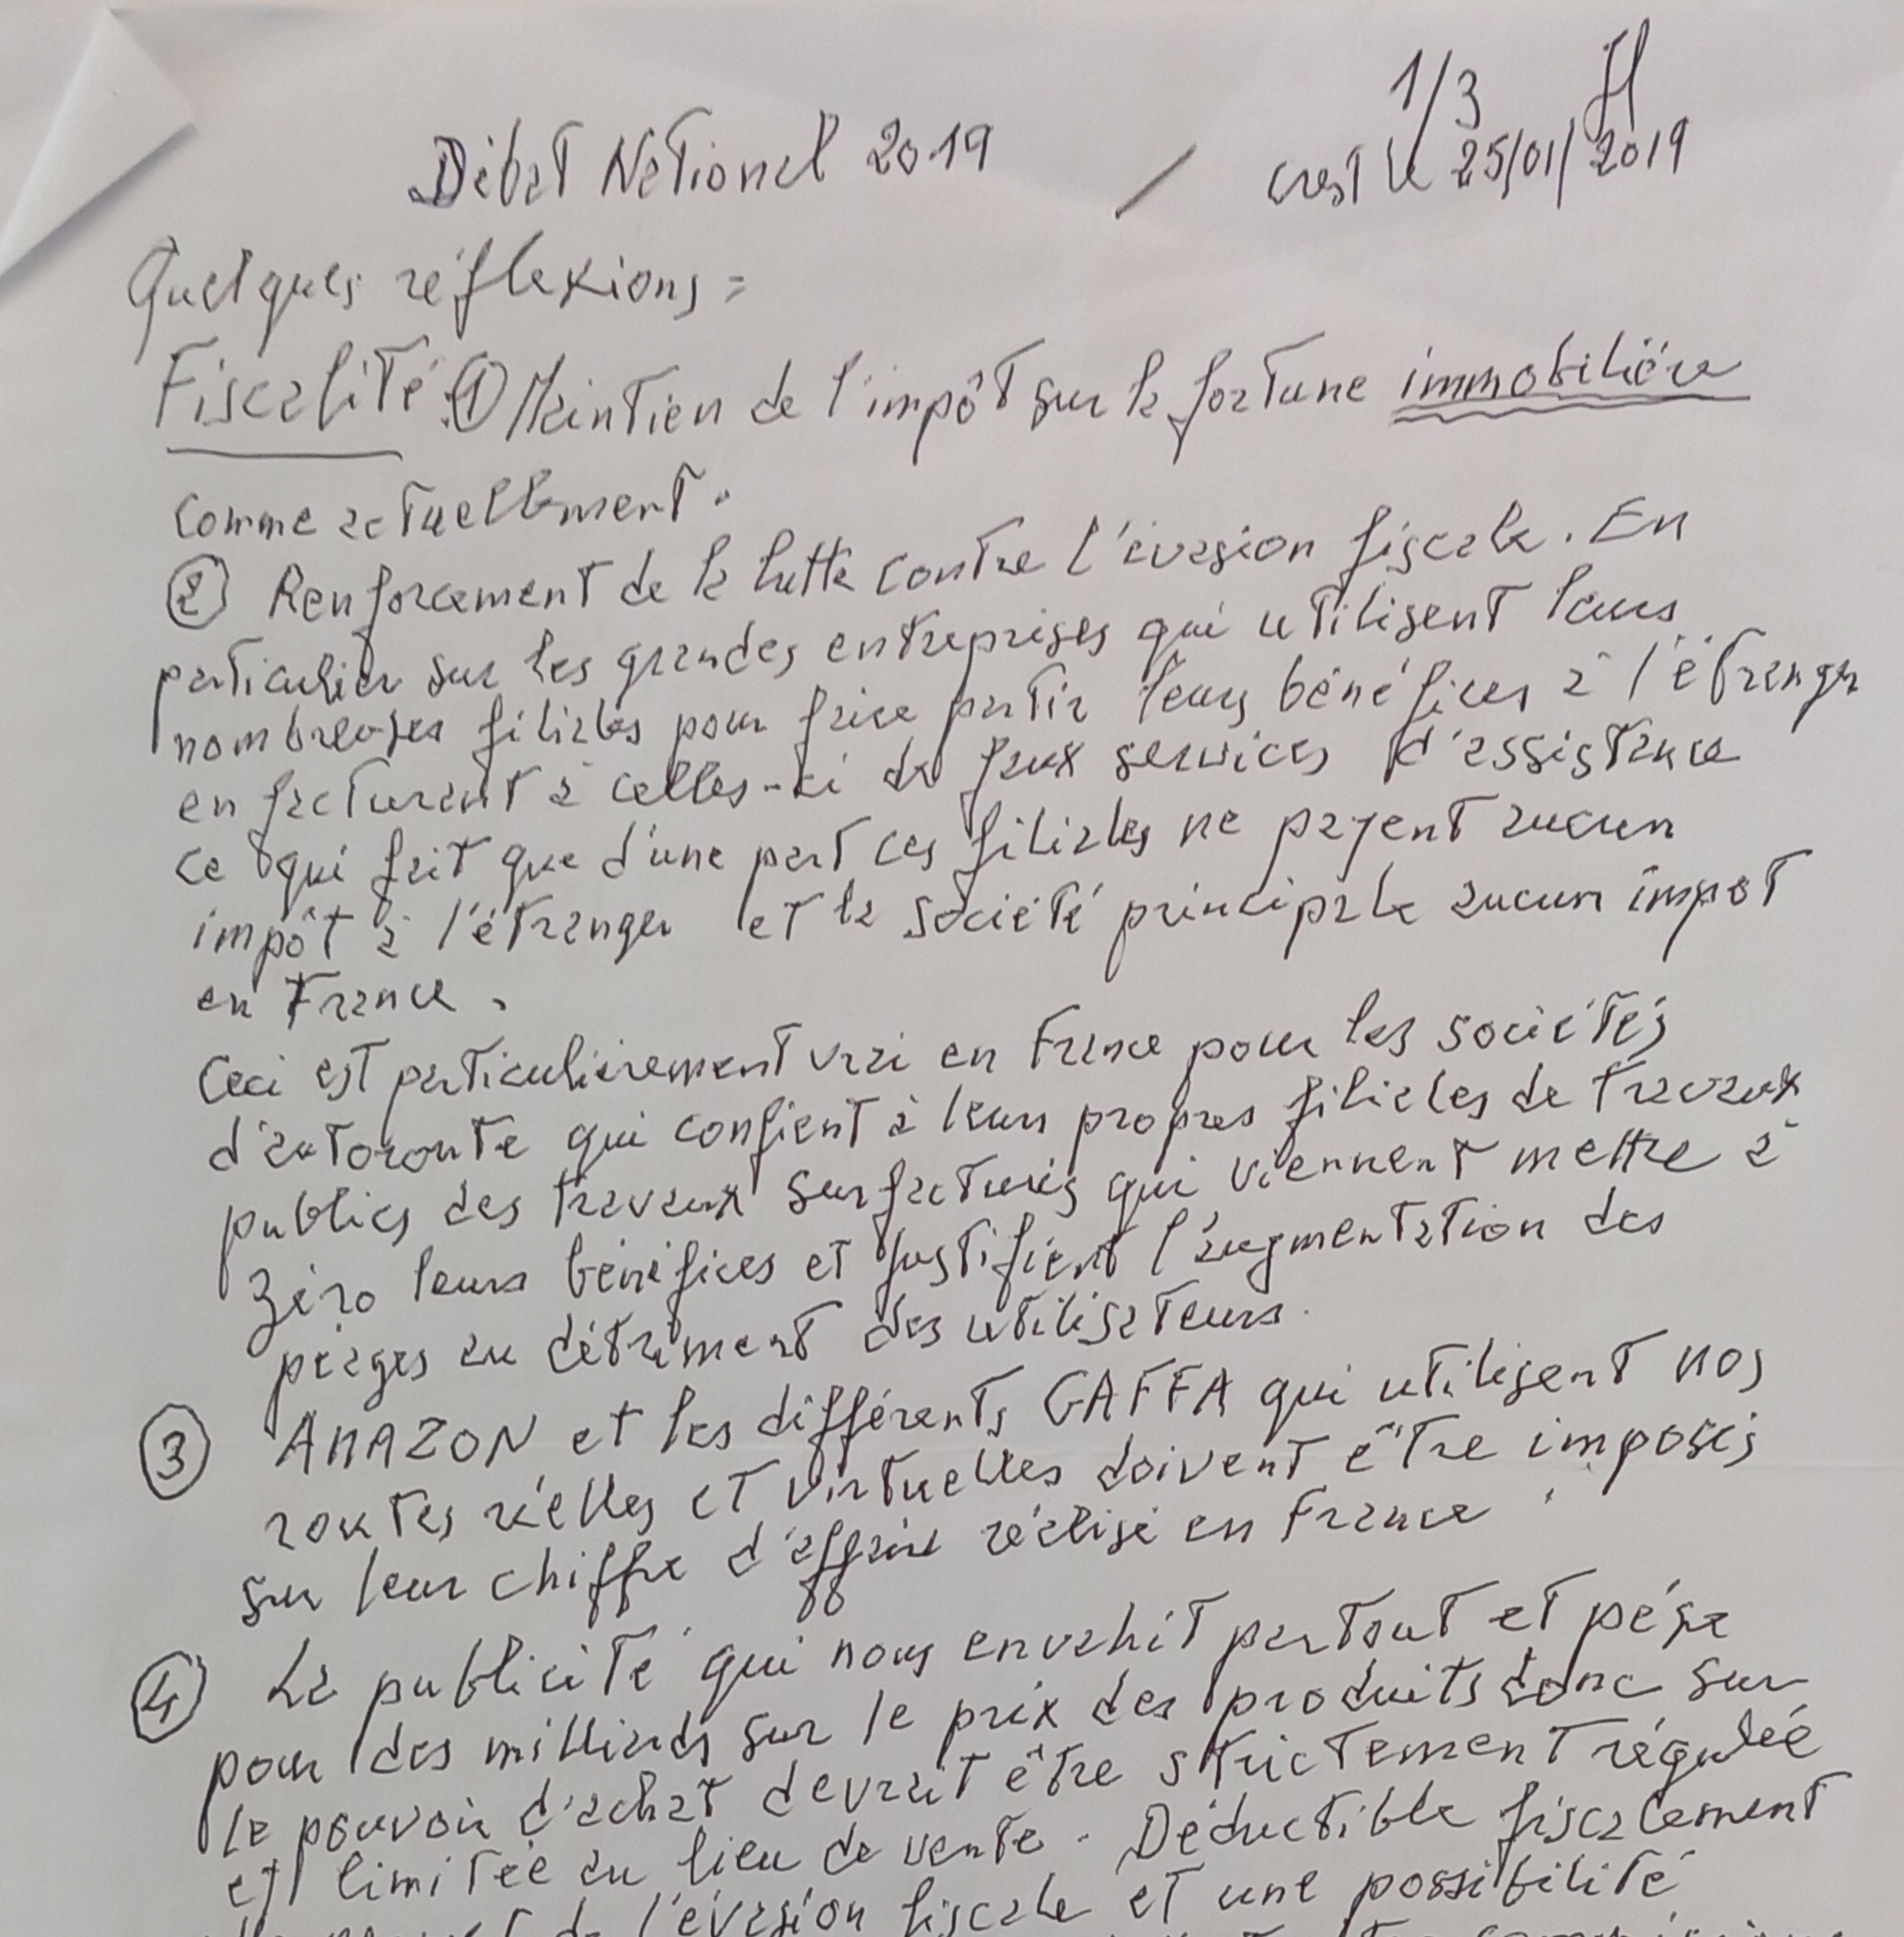 1/3
Débat National 2019 / Crest le 25/01/2019
Quelques réflexions :
Fiscalité : ① Maintien de l'impôt sur la fortune immobilière
comme actuellement.
② Renforcement de la lutte contre l'évasion fiscale. En
particulier sur les grandes entreprises qui utilisent leurs
nombreuses filiales pour faire partir leurs bénéfices à l'étranger
en facturant à celles-ci de faux services d'assistance
ce qui fait que d'une part ces filiales ne payent aucun
impôt à l'étranger et la société principale aucun impot
en France.
Ceci est particulièrement vrai en France pour les sociétés
d'autoroute qui confient à leurs propres filiales de travaux
publics des travaux surfacturés qui viennent mettre à
zéro leurs bénéfices et justifient l'augmentation des
péages au détriment des utilisateurs.
③ AMAZON et les différents GAFFA qui utilisent nos
routes réelles et virtuelles doivent être imposés
sur leur chiffre d'affaire réalisé en France.
④ La publicité qui nous envahit partout et pèse
pour des milliards sur le prix des produits donc sur
le pouvoir d'achat devrait être strictement régulée
et limitée au lieu de vente. Déductible fiscalement
de l'évasion fiscale et une possibilité